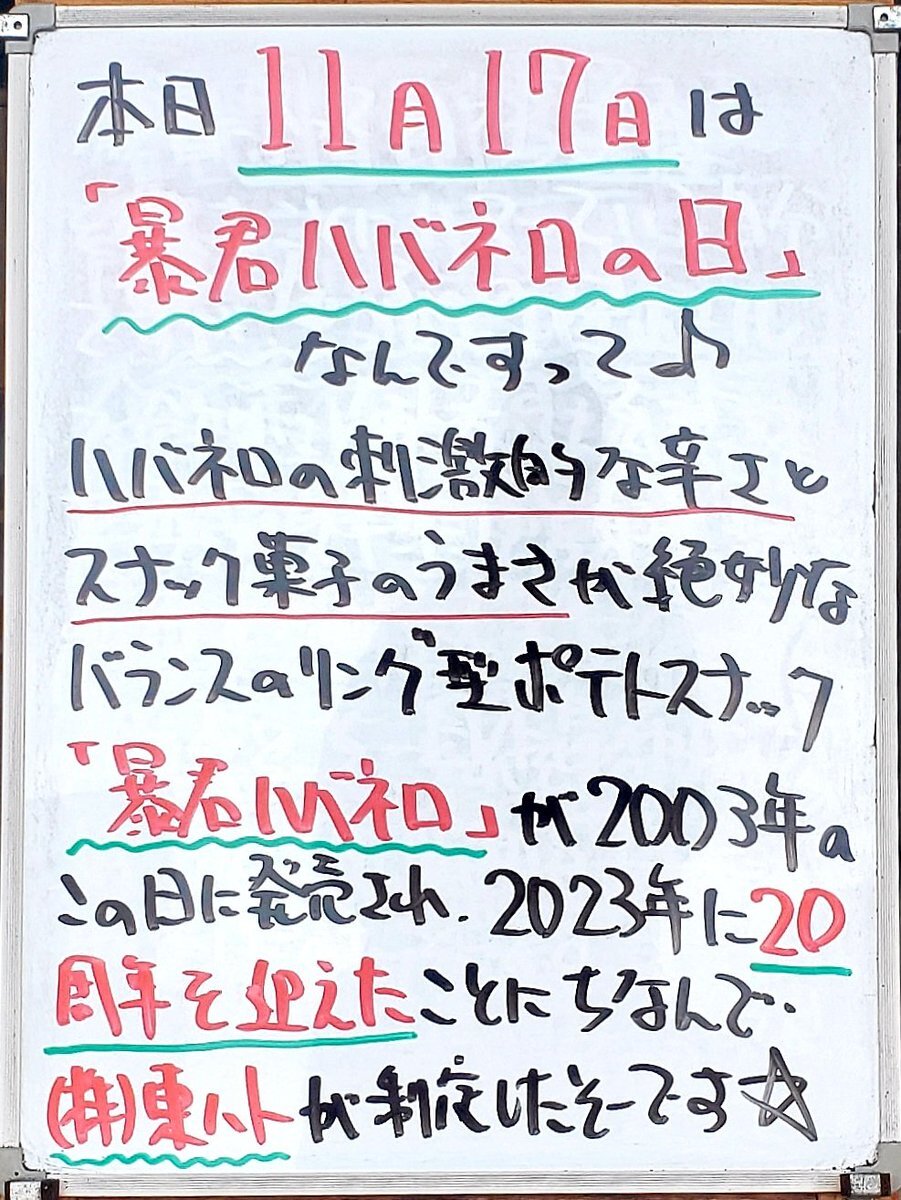 本日11月17日は
「暴君ハバネロの日」
なんですって♪
ハバネロの刺激的な辛さと
スナック菓子のうまさが絶妙な
バランスのリング型ポテトスナック
「暴君ハバネロ」が2003年の
この日に発売され、2023年に20
周年を迎えたことにちなんで、
(株)東ハトが制定したそーです☆